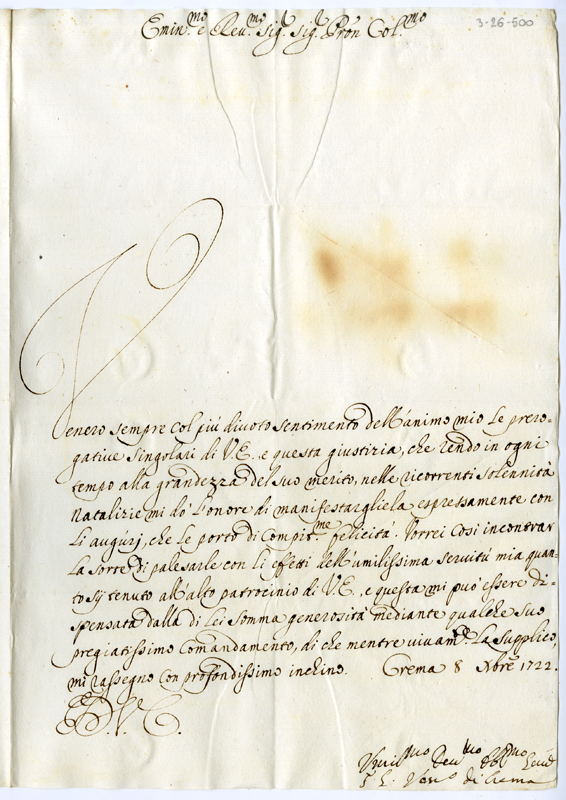 3-26-500
Emin.mo e Reu.mo Sig.r Sig.r Pron Col.mo
Venero sempre col più diuoto sentimento dell'animo mio le prero=
gatiue singolari di V.E. e questa giustizia, che rendo in ogni
tempo alla grandezza del suo merito, nelle ricorrenti solennità
Natalizie mi dò l'onore di manifestargliela espressamente con
li augurj, che le porto di compit.me felicità. Vorrei così incontrar
la sorte di palesarle con li effetti dell'umilissima seruitù mia quan=
to sij tenuto all'alto patrocinio di V.E., e questa mi può essere di=
spensata dalla di lei somma generosità mediante qualche suo
pregiatissimo comandamento, di che mentre viuam.te la supplico,
mi rassegno con profondissimo inchino. Crema 8 Xbre 1722.
D. V. E.
Vmil.mo Deu.mo Obl.mo
di Crema